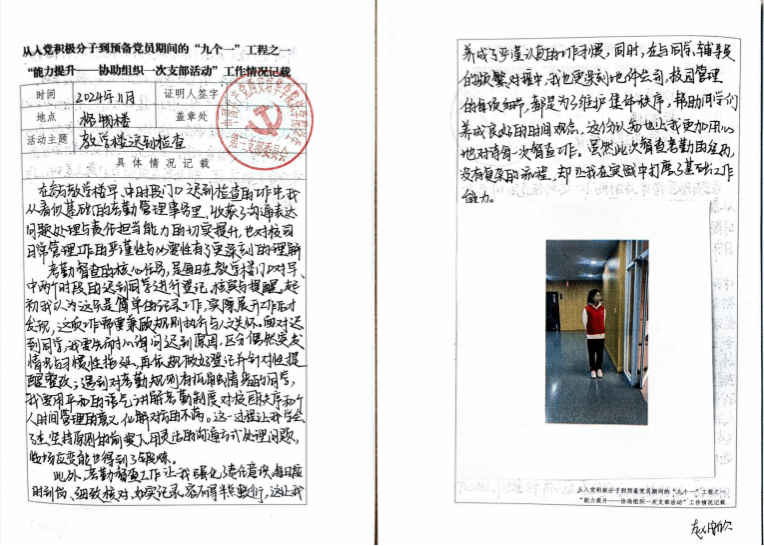 从入党积极分子到预备党员期间的“九个一”工程之一
“能力提升——协助组织一次支部活动”工作情况记载
时间 2024年11月 证明人签字
地点 杨咀楼 盖章处
活动主题 教学楼迟到检查
第二支部委员会
具体情况记载
在参与教学楼早、中时段门口迟到检查的工作中,我
从看似基础的考勤管理事务里,收获了沟通表达
问题处理与责任担当能力的切实提升,也对校园
日常管理工作的严谨性与必要性有了更深刻的理解
考勤督查的核心任务,是每日在教学楼门口对早、
中两个时段的迟到同学进行登记、核实与提醒,起
初我认为这只是简单的记录工作,实际展开工作后才
发现,这项工作需要兼顾规则执行与人文关怀。面对迟
到同学,我要先耐心询问迟到原因,区分偶然突发
情况与习惯性拖延,再依规做好登记并针对性提
醒整改;遇到对考勤规则有抵触情绪的同学,
我要用平和的语气讲解考勤制度对校园秩序和个
人时间管理的意义,化解对方的不满。这一过程让我学会
了在坚持原则的前提下,用灵活的沟通方式处理问题,
临场应变能力得到了锻炼。
此外,考勤督查工作让我强化责任意识,每日按
时到岗、细致核对、如实记录,容不得半点敷衍,这让我
养成了严谨认真的工作习惯,同时,在与同学、辅导员
的频繁对接中,我也更深刻地体会到,校园管理
的每项细节,都是为了维护集体秩序,帮助同学们
养成良好的时间观念,这份认知也让我更加用心
地对待每一次督查工作。虽然此次督查考勤的经历,
没有复杂的流程,却让我在实践中打磨了基础工作
能力。
从入党积极分子到预备党员期间的“九个一”工程之一
“能力提升——协助组织一次支部活动”工作情况记载